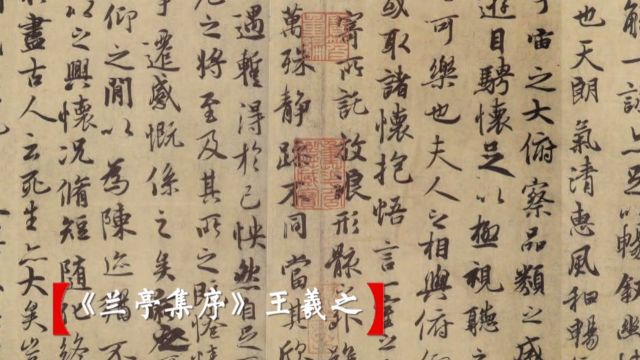 一詠亦足以暢敘幽
也天朗氣清惠風和暢
宙之大俯察品類之盛
遊目騁懷足以極視聽之
可樂也夫人之相與俯
或取諸懷抱悟言一室之
寄所託放浪形骸之外雖
萬殊靜躁不同當其欣
遇暫得於己怏然自足
之將至及其所之既惓情
遷感慨係之矣
仰之閒以為陳迹猶不
以之興懷況脩短隨化終
盡古人云死生亦大矣豈
《兰亭集序》王羲之